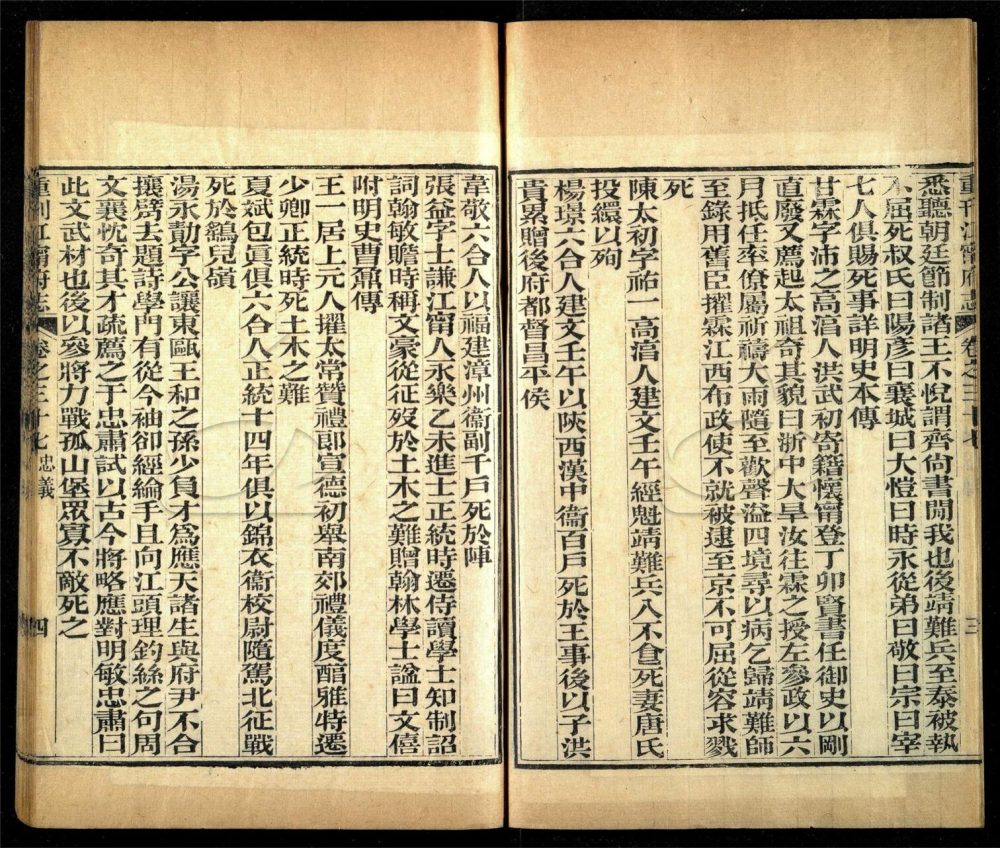 重刊江甯府志 卷之三十七 三
悉聽朝廷節制諸王不悅謂齊尙書閒我也後靖難兵至泰被執
不屈死叔氏曰陽彥曰襄城曰大愷曰時永從弟曰敬曰宗曰宰
七人俱賜死事詳明史本傳
甘霖字沛之高淯人洪武初寄籍懷甯登丁卯賢書任御史以剛
直廢又薦起太祖奇其貌曰浙中大旱汝往霖之授左參政以六
月抵任率僚屬祈禱大雨隨至歡聲溢四境尋以病乞歸靖難師
至錄用舊臣擢霖江西布政使不就被逮至京不可屈從容求戮
死
陳太初字祐一高淯人建文壬午經魁靖難兵入不食死妻唐氏
投繯以殉
楊璟六合人建文壬午以陝西漢中衞百戶死於王事後以子洪
貴累贈後府都督昌平侯
韋敬六合人以福建漳州衞副千戶死於陣
張益字士謙江甯人永樂乙未進士正統時遷侍讀學士知制詔
詞翰敏贍時稱文豪從征歿於土木之難贈翰林學士諡曰文僖
附明史曹鼐傳
王一居上元人擢太常贊禮郎宣德初舉南郊禮儀度醞雅特遷
少卿正統時死土木之難
夏斌包眞俱六合人正統十四年俱以錦衣衞校尉隨駕北征戰
死於鷂兒嶺
湯永勣字公讓東甌王和之孫少負才爲應天諸生與府尹不合
攘臂去題詩學門有從今袖卻經綸手且向江頭理釣絲之句周
文襄忱奇其才疏薦之于忠肅試以古今將略應對明敏忠肅曰
此文武材也後以參將力戰孤山堡眾寡不敵死之
重刊江甯府志 卷之三十七 忠義 四